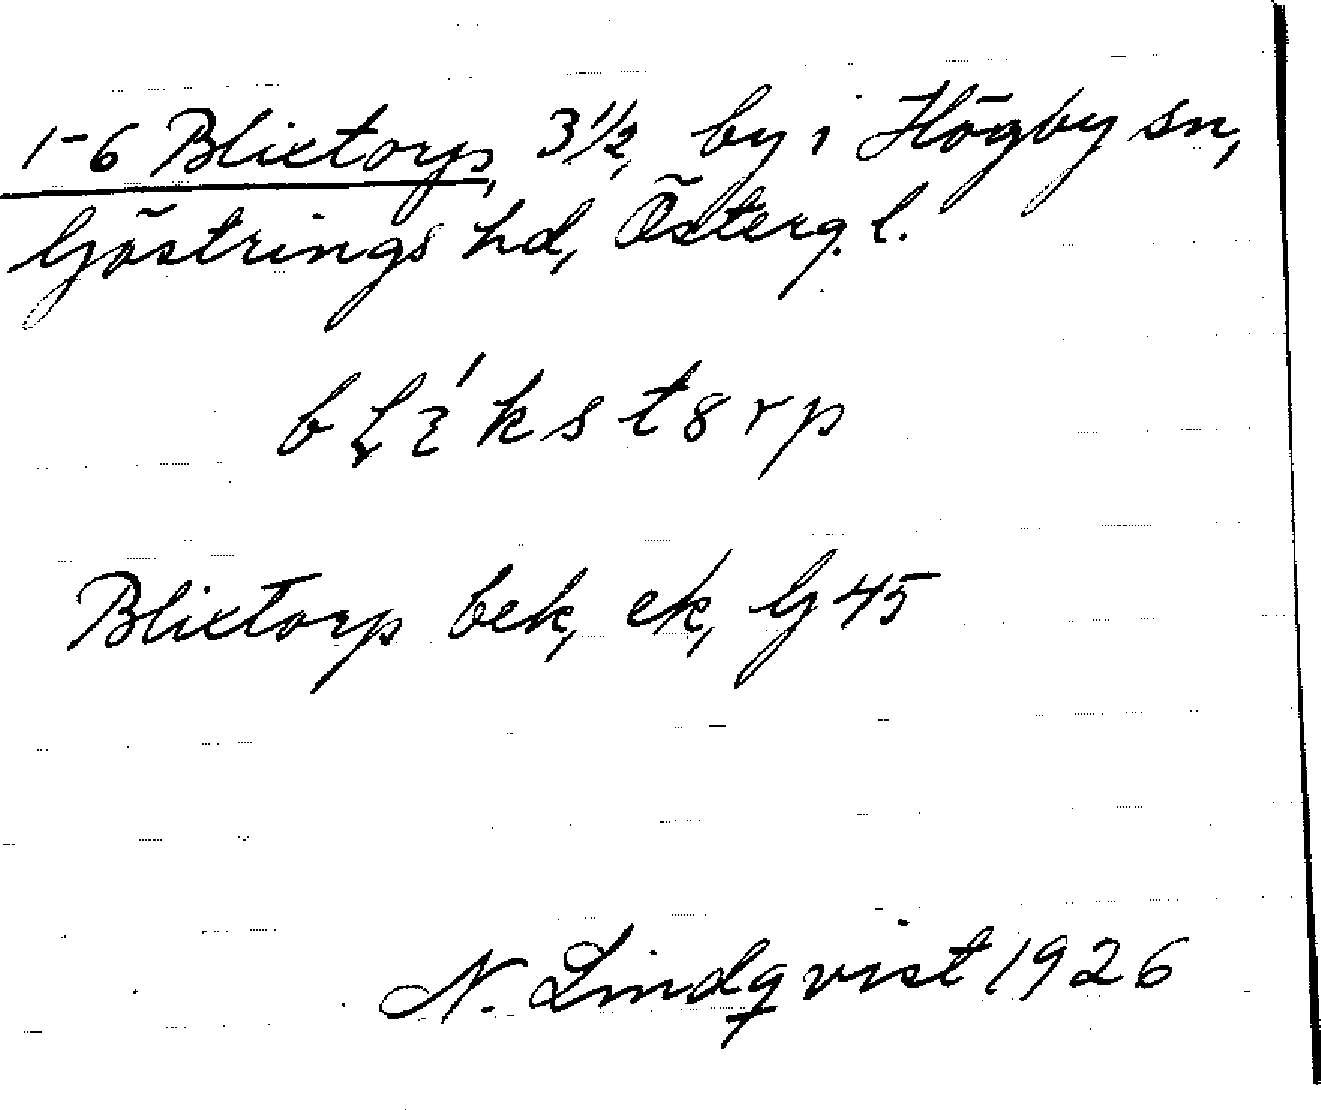 1-6 Blixtorp, 3 1/2, by i Högby sn,
Göstrings hd, Österg. l.
bḷɩ́kstɞrp
Blixtorp bek, ek, G 45
N. Lindqvist 1926